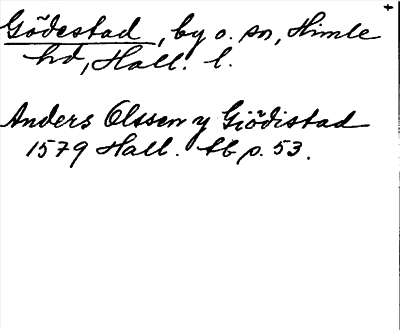 Gödestad, by o. sn, Himle
hd, Hall. l.
Anders Olssen y Giödistad
1579 Hall. tb p. 53.